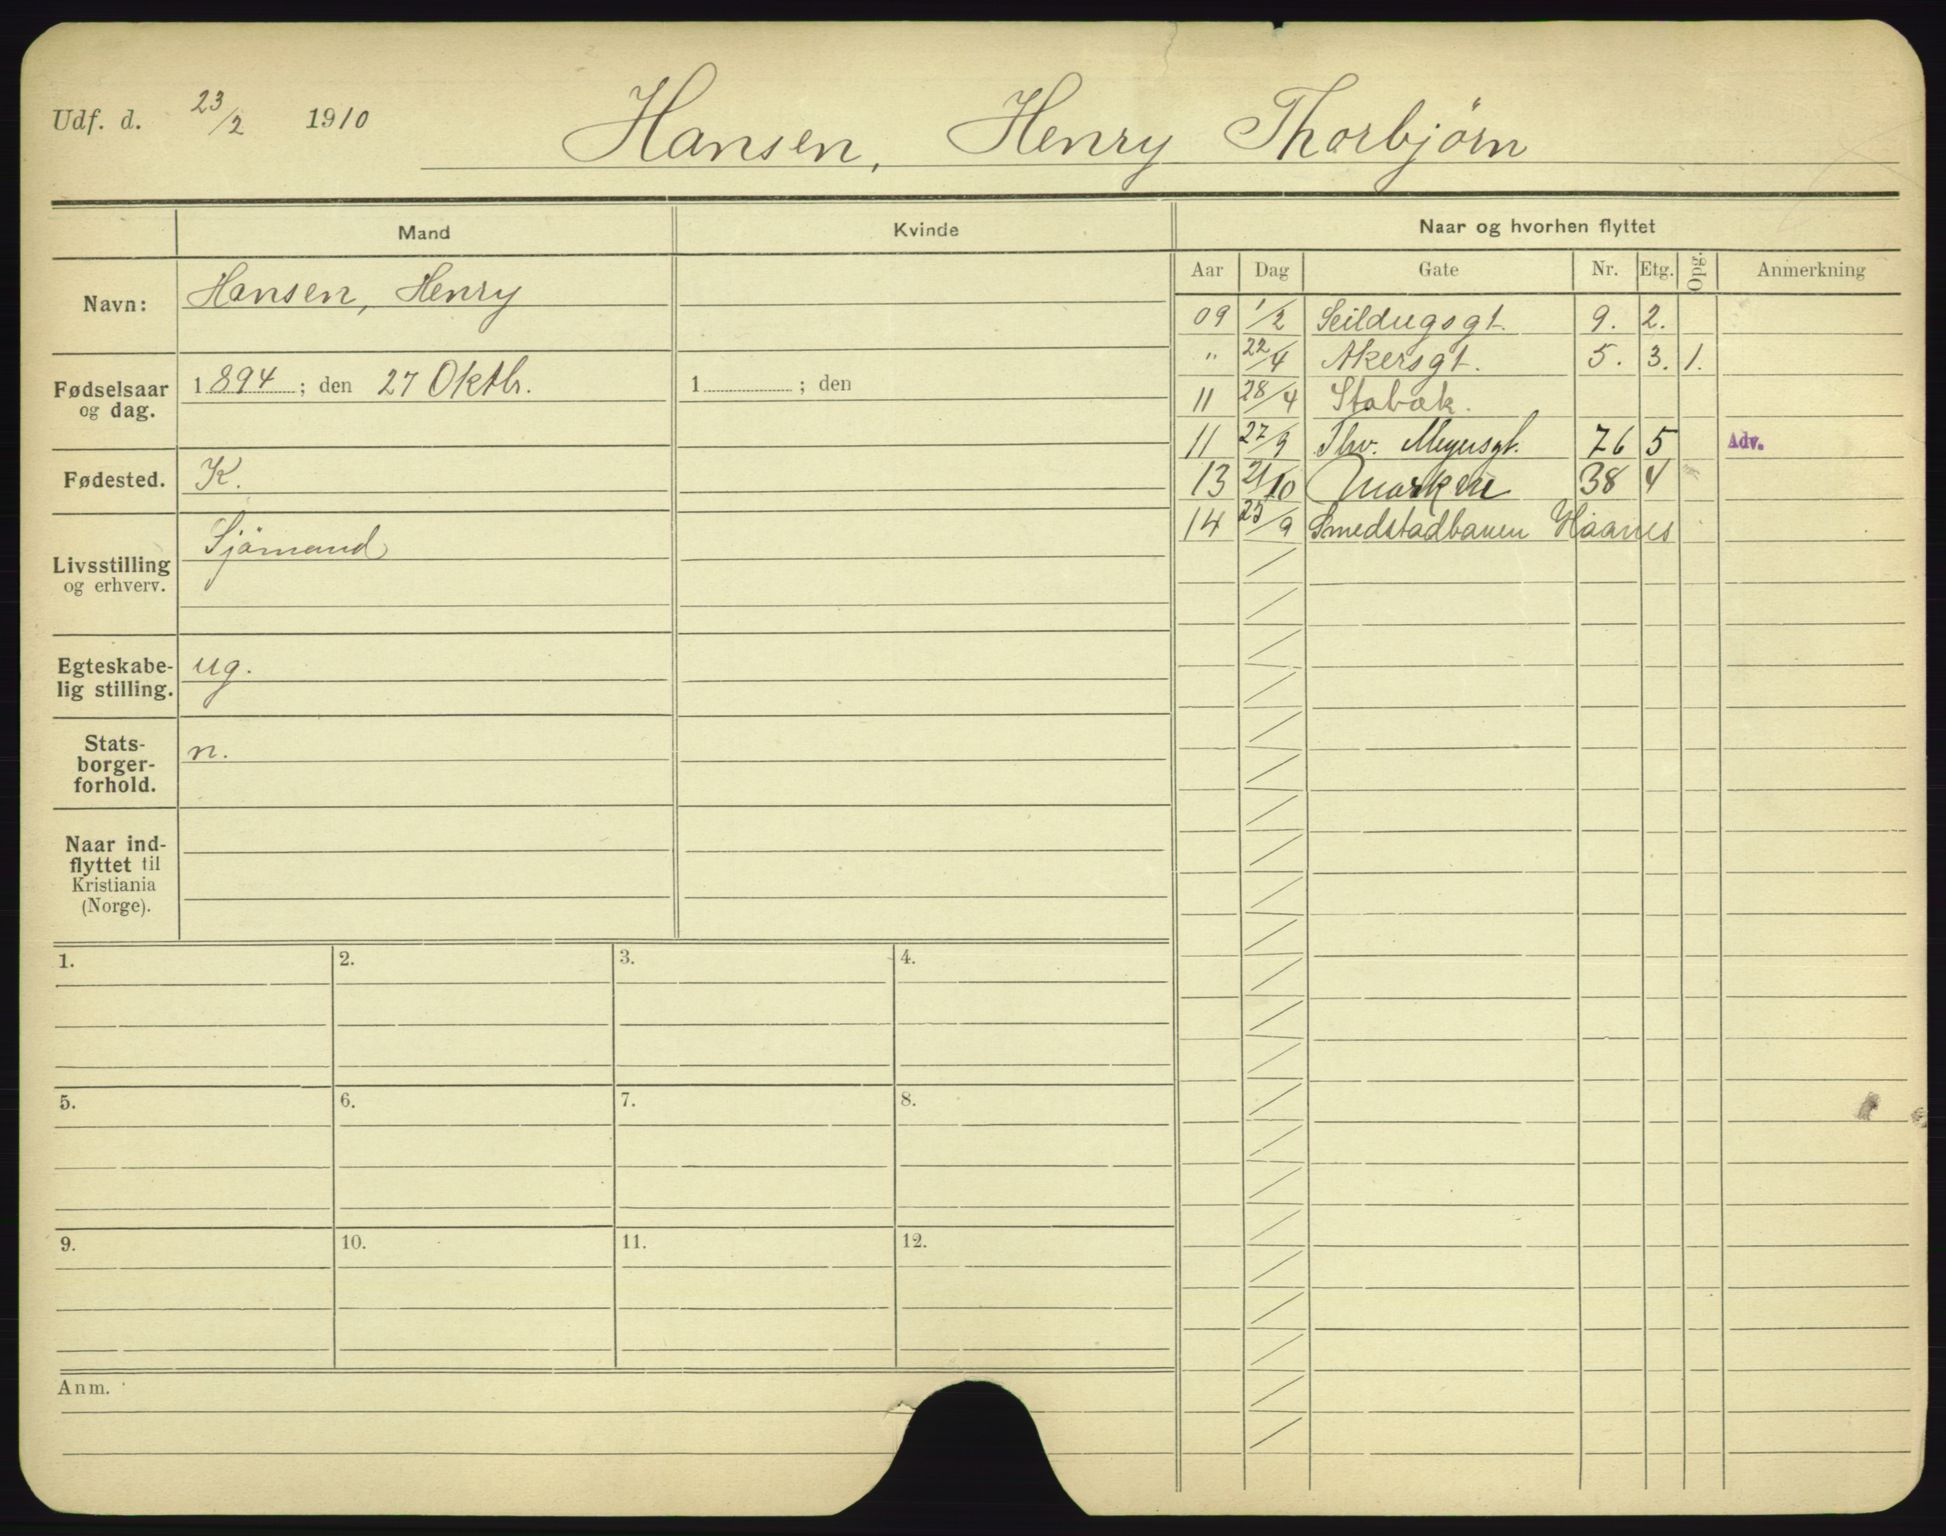 Udf. d. 23/2 1910 Hansen, Henry Thorbjørn
Mand Kvinde Naar og hvorhen flyttet
Aar Dag Gate Nr. Etg. Opg. Anmerkning
Navn: Hansen, Henry
Fødselsaar og dag. 1894; den 27 Oktbr. 1 ; den
Fødested. K.
Livsstilling og erhverv. Sjömand
Egteskabe-
lig stilling. ug.
Stats-
borger-
forhold. n.
Naar ind-
flyttet til
Kristiania
(Norge).
09 1/2 Seildugsgt. 9. 2.
" 22/4 Akersgt. 5. 3. 1.
11 28/4 Stabæk.
11 27/9 Thv. Meyersgt. 76 5 Adv.
13 2/10 Markvn 38 4
14 25/9 Smedstadbanen Haanes
1. 2. 3. 4.
5. 6. 7. 8.
9. 10. 11. 12.
Anm.